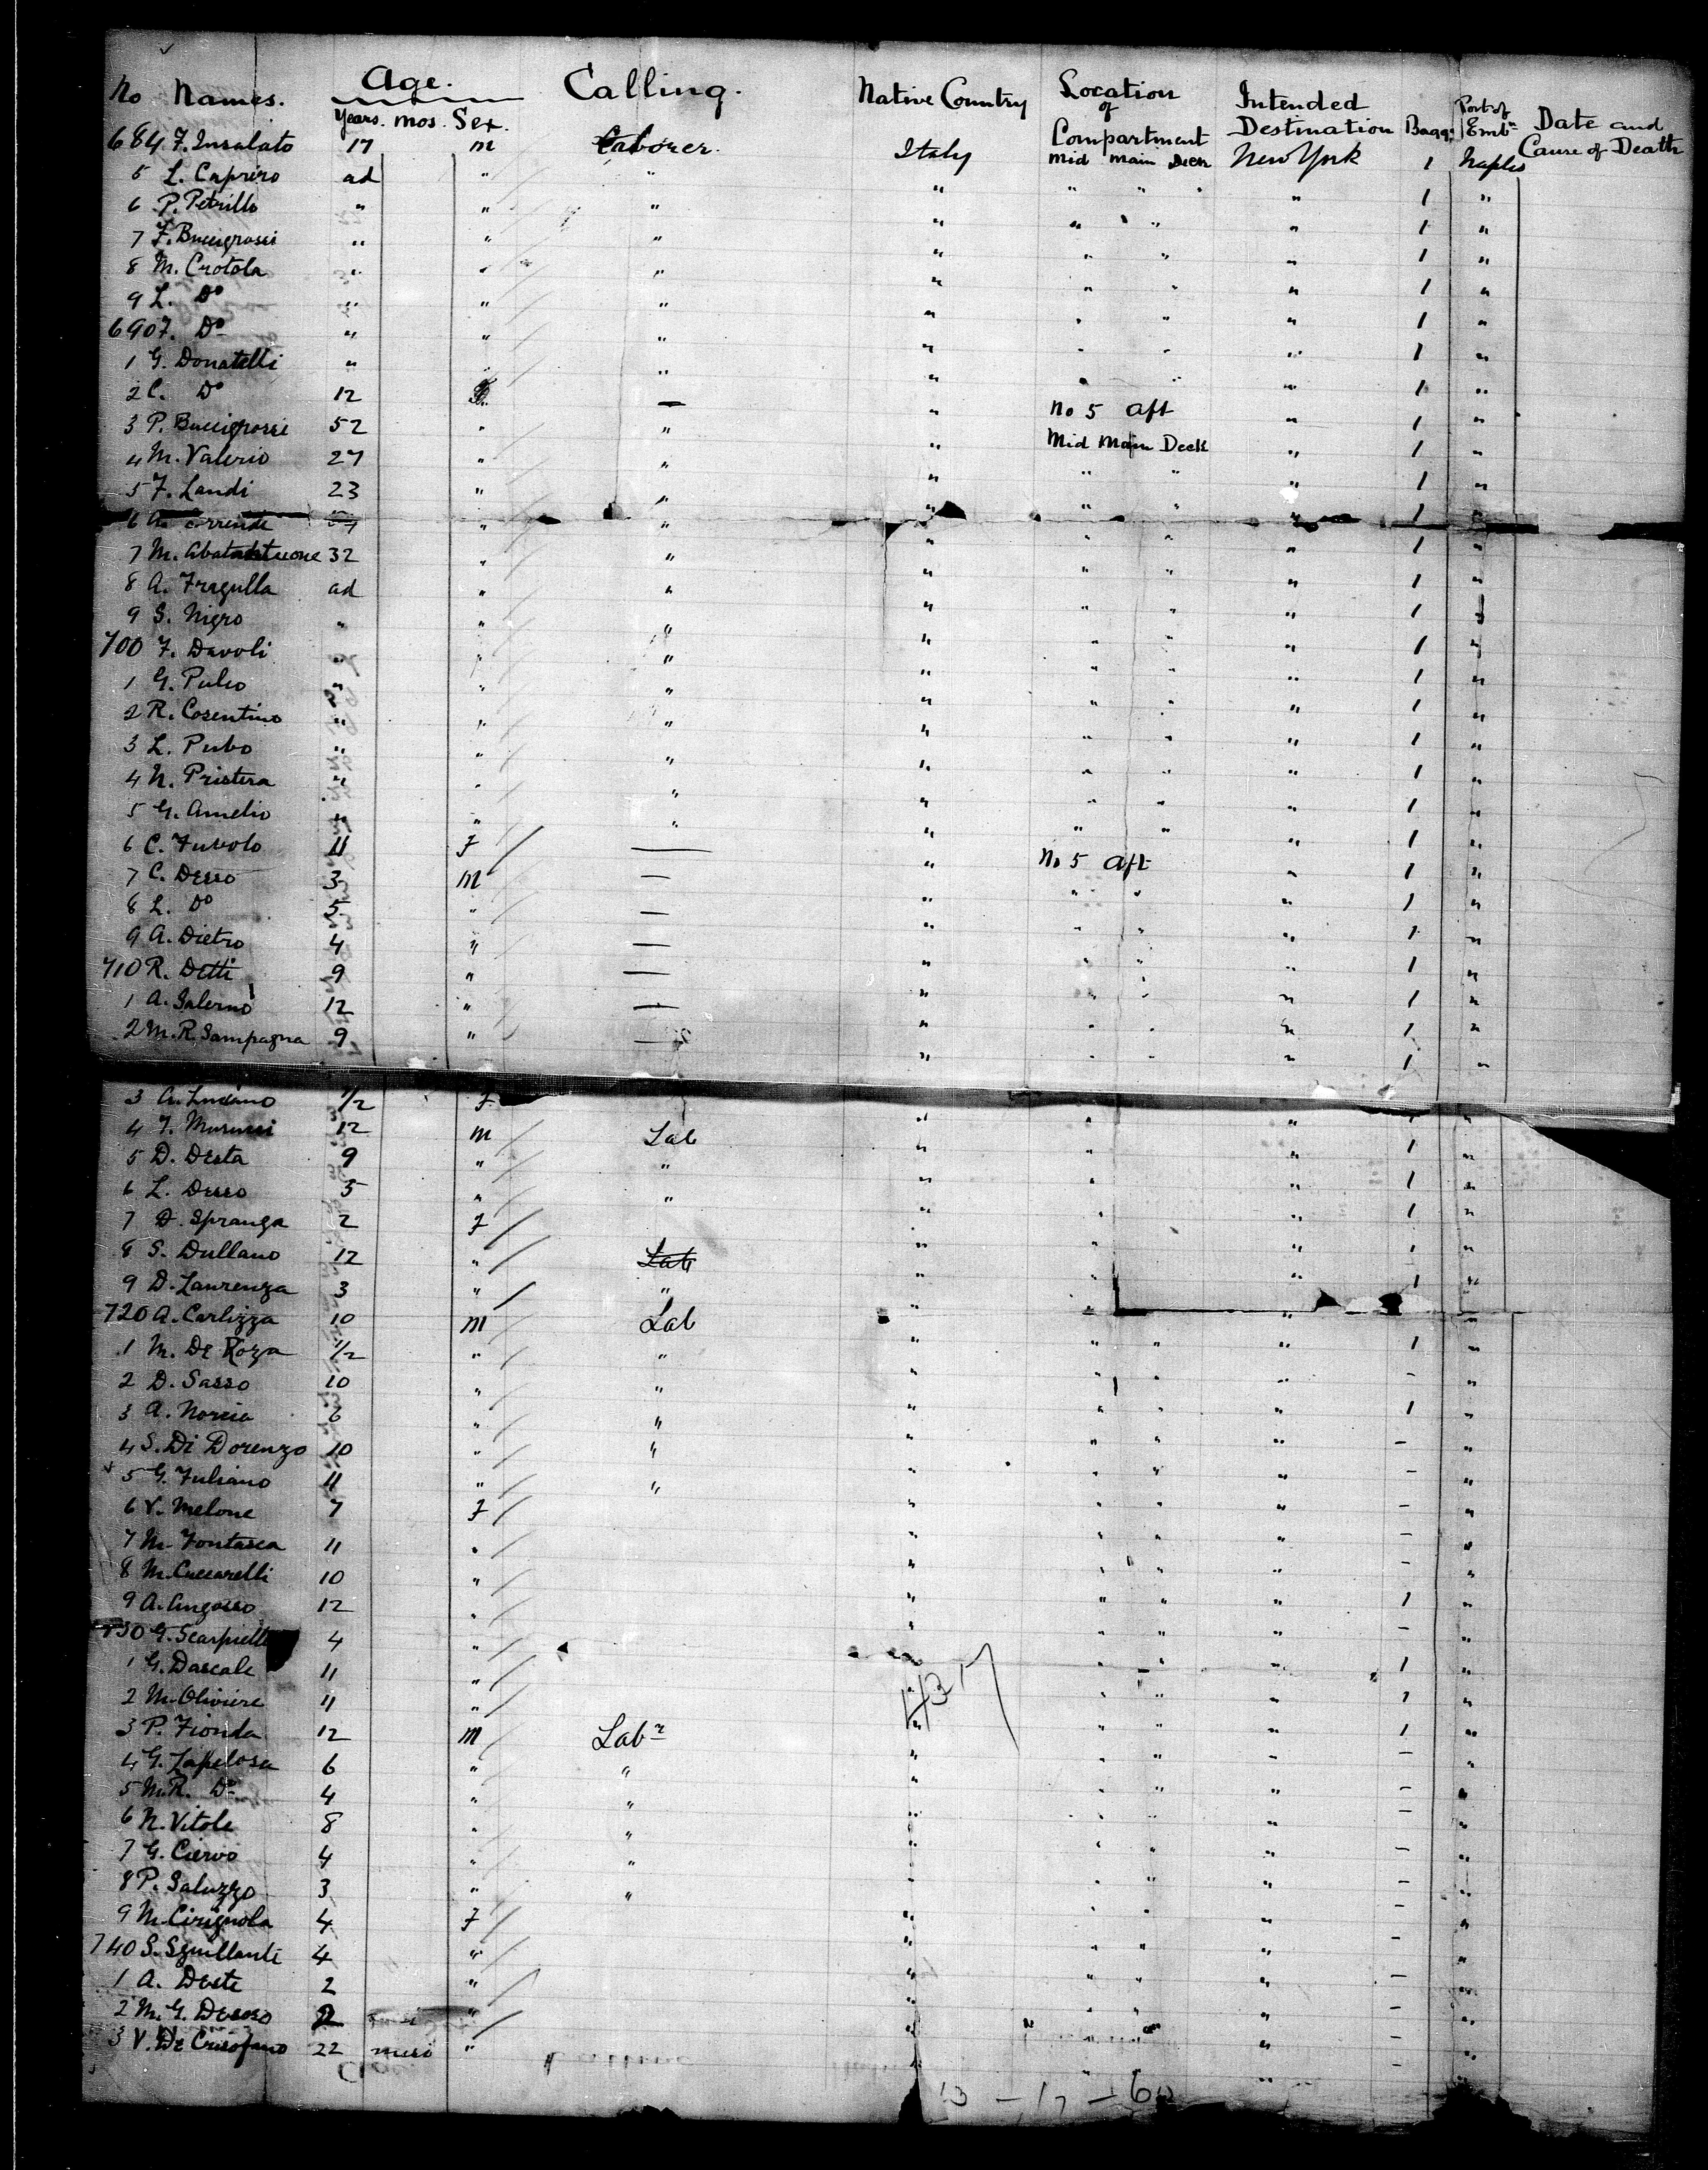 No Names. Age. Calling. Native Country Location of Compartment Intended Destination Bagg. Port of Embn Date and Cause of Death
Years. mos. Sex.
684 F. Insalato 17 m Laborer. Italy mid main Deck New York 1 Naples
5 L. Capriro ad " " " " " " 1 "
6 P. Petrillo " " " " " " " 1 "
7 F. Buccigrossi " " " " " " " 1 "
8 M. Crotola " " " " " " " 1 "
9 L. Do " " " " " " " 1 "
690 F. Do " " " " " " " 1 "
1 G. Donatelli " " " " " " " 1 "
2 C. Do 12 — " No 5 aft " 1 "
3 P. Buccigrossi 52 " " " Mid Main Deck " 1 "
4 M. Valerio 27 " " " " " " 1 "
5 F. Landi 23 " " " " " " 1 "
6 A. " " " " " " 1 "
7 M. Abatantuone 32 " " " " " " 1 "
8 A. Fragulla ad " " " " " " 1 "
9 S. Nigro " " " " " " " 1 "
700 F. Davoli " " " " " " " 1 "
1 G. Pulio " " " " " " " 1 "
2 R. Cosentino " " " " " " " 1 "
3 L. Pubo " " " " " " " 1 "
4 N. Pristera " " " " " " " 1 "
5 G. Amelio " " " " " " " 1 "
6 C. Fuvolo 11 F — " No 5 aft " 1 "
7 C. Desso 3 M — " " " " 1 "
8 L. Do 5 " — " " " " 1 "
9 A. Dietro 4 " — " " " " 1 "
710 R. Detti 9 " — " " " " 1 "
1 A. Salerno 12 " — " " " " 1 "
2 M. R. Sampagna 9 " — " " " " 1 "
3 A. Luciano 1/2 F " " " 1 "
4 F. Murussi 12 M Lab " " " 1 "
5 D. Desta 9 " " " " " 1 "
6 L. Desso 5 " " " " " 1 "
7 D. Spranga 2 F " " " 1 "
8 S. Dullano 12 " Lab " " " 1 "
9 D. Laurenza 3 " " " " " "
720 A. Carlizza 10 M Lab " " " " 1 "
1 M. De Roza 1/2 " " " " " " - "
2 D. Sasso 10 " " " " " " 1 "
3 A. Norcia 6 " " " " " " - "
4 S. Di Dorenzo 10 " " " " " " - "
5 G. Fuliano 11 " " " " " " - "
6 V. Melone 7 F " " " " - "
7 M. Fontasca 11 " " " " " - "
8 M. Cuccarelli 10 " " " " " 1 "
9 A. Angosso 12 " " " " " - "
730 G. Scarpiell 4 " " " " 1 "
1 G. Dascale 11 " " " " " 1 "
2 M. Oliviere 11 " " " " " 1 "
4317
3 P. Fionda 12 M Labr " " " " - "
4 G. Zapelosa 6 " " " " " " - "
5 M. R. Do 4 " " " " " " - "
6 N. Vitole 8 " " " " " " - "
7 G. Ciervo 4 " " " " " " - "
8 P. Saluzzo 3 " " " " " " - "
9 M. Cirignola 4 F " " " " - "
740 S. Sguillanti 4 " " " " " - "
1 A. Deste 2 " " " " " - "
2 M. G. Desoso 2 " " " " " - "
3 V. De Crisofano 22 mesi " " " - "